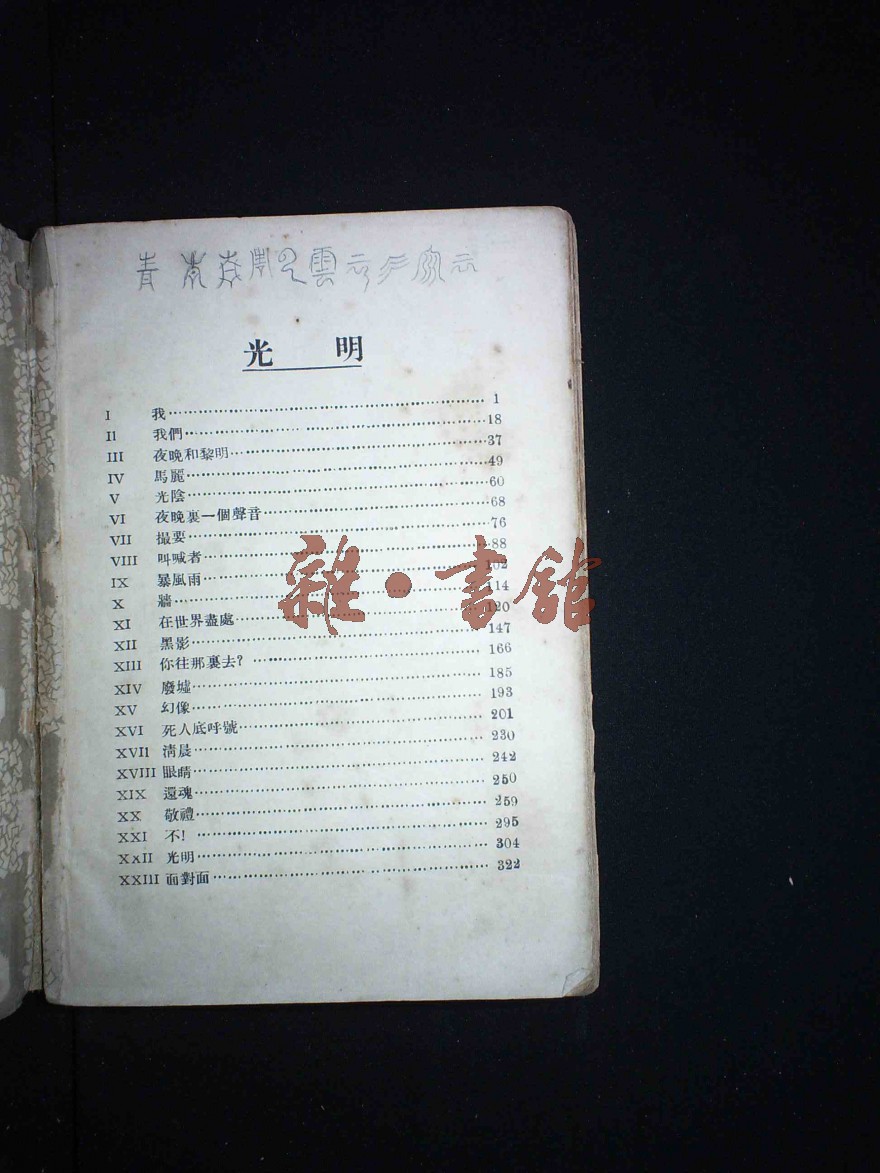 青
雲
光明
I 我 1
II 我們 18
III 夜晚和黎明 37
IV 馬麗 49
V 光陰 60
VI 夜晚裏一個聲音 68
VII 撮要 76
VIII 叫喊者 88
IX 暴風雨 102
X 牆 114
XI 在世界盡處 120
XII 黑影 147
XIII 你往那裏去? 166
XIV 廢墟 185
XV 幻像 193
XVI 死人底呼號 201
XVII 清晨 230
XVIII 眼睛 242
XIX 還魂 250
XX 敬禮 259
XXI 不! 295
XXII 光明 304
XXIII 面對面 322
雜·書館